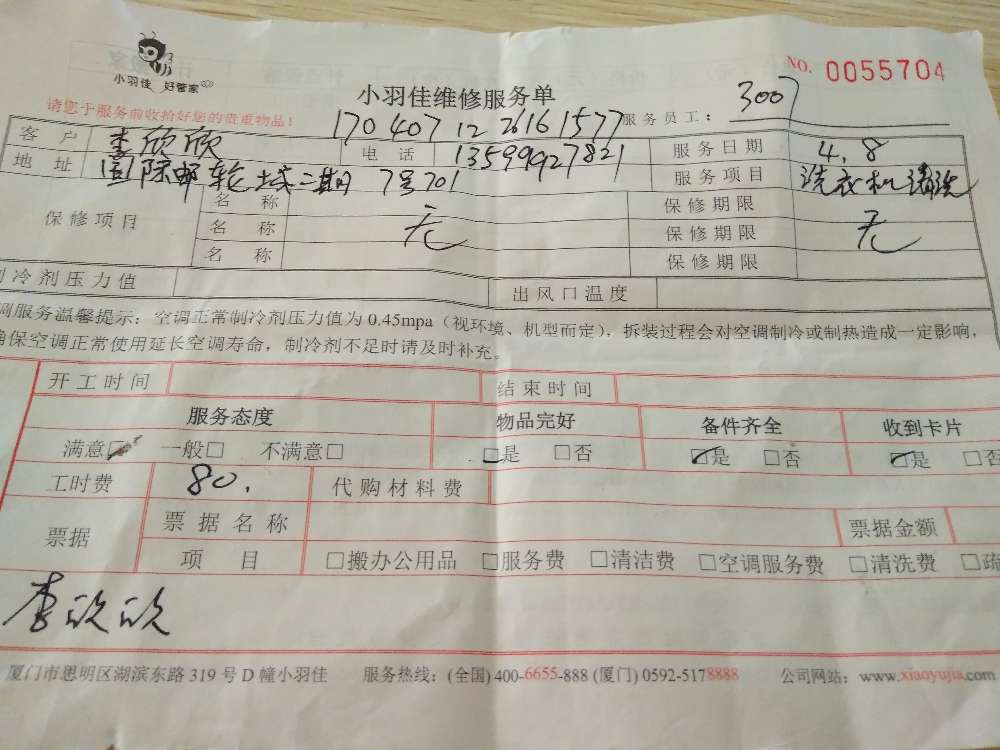 小羽佳 好管家
NO. 0055704
小羽佳维修服务单
请您于服务前收拾好您的贵重物品！
170407122616 1577
服务员工： 3007
客户 李欣欣 电话 13599927821 服务日期 4.8
地址 国际邮轮城二期 7号701 服务项目 洗衣机清洗
保修项目 名称 无 保修期限 无
名称 保修期限
名称 保修期限
冷剂压力值 出风口温度
调服务温馨提示：空调正常制冷剂压力值为0.45mpa（视环境、机型而定），拆装过程会对空调制冷或制热造成一定影响，
确保空调正常使用延长空调寿命，制冷剂不足时请及时补充。
开工时间 结束时间
服务态度 物品完好 备件齐全 收到卡片
满意☑ 一般□ 不满意□ ☑是 □否 ☑是 □否 ☑是 □否
工时费 80. 代购材料费
票据 票据名称 票据金额
项目 □搬办公用品 □服务费 □清洁费 □空调服务费 □清洗费 □疏
李欣欣
厦门市思明区湖滨东路319号D幢小羽佳 服务热线：(全国) 400-6655-888 (厦门) 0592-5178888 公司网站：www.xiaoyujia.com